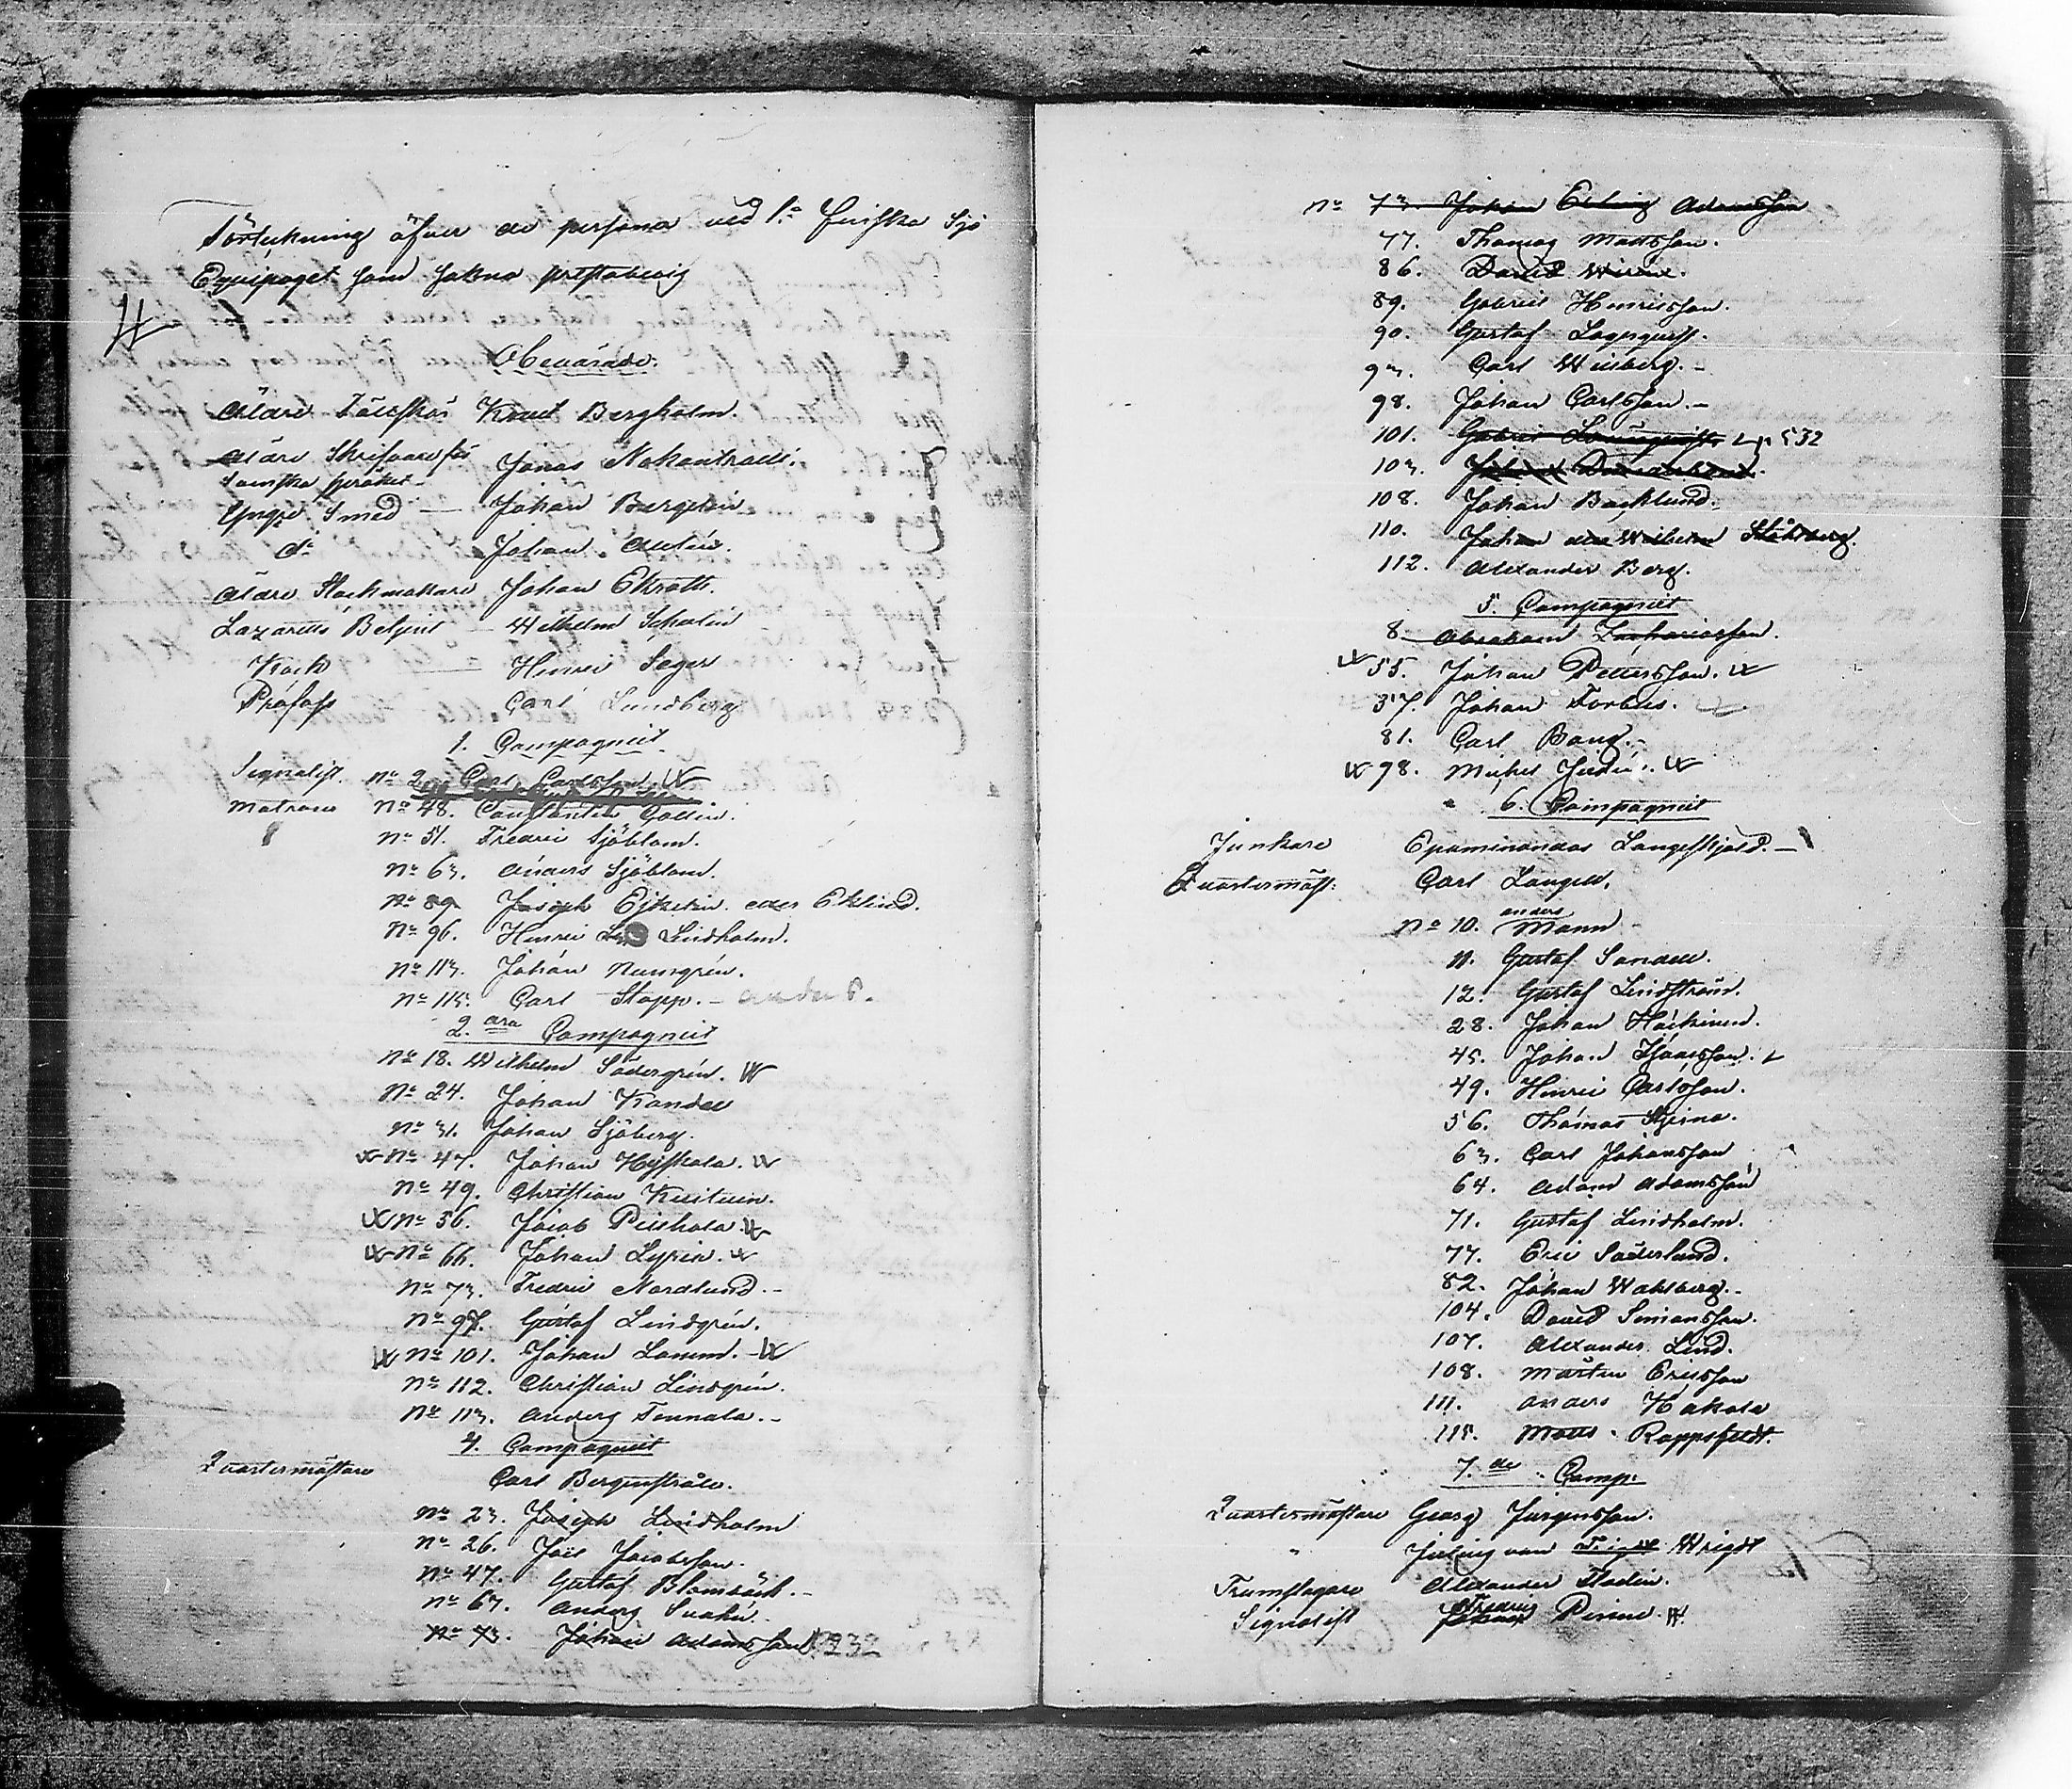 Förteckning öfver de persona ved 1:a Finska Sjö
Equipaget som sakna prestabevis
Obevärade.
Äldre Knut Bergholm.
Äldre Skrifvare för Jonas
Svenska språket
Yngre Smed — Johan
d:o Johan Autén.
Äldre Stockmakare Johan Ekroth.
Lazaretts Betjent — Wilhelm Schalin
Kock — Henric Seger
Profoss Carl Lundberg
1. Compagniet
Signalist. No 2 Carl Carlsson
Matroser No 48. Constantin Collin.
No 51. Fredric Sjöblom.
No 63. Anders Sjöblom.
No 89 Joseph eller Eklund.
No 96. Henric Lindholm.
No 113. Johan Numgrén.
No 115. Carl Stopp. — Anders.
2.dra Compagniet
No 18. Wilhelm Södergrén.
No 24. Johan Kandell
No 31. Johan Sjöberg.
No 47. Johan Hyskala.
No 49. Christian
No 56. Jacob
No 66. Johan Lyrén.
No 73. Fredric Nordlund. -
No 97. Gustaf Lindgrén.
No 101. Johan Lamm. -
No 112. Christian Lindgrén.
No 113. Anders Tennala. -
4. Compagniet
Quartermästare Carl Bergenstråle.
No 23. Joseph Lindholm
No 26. Joel Jacobsson.
No 47. Gustaf Blombäck. -
No 63. Anders Svahn.
No 73. Johan Adamsson 232
No 73. Johan Adamsson
77. Thomas Mattsson.
86. David Wirén.
89. Gabriel Henricsson.
90. Gustaf Lagerqvist.
93. Carl Wieberg. -
98. Johan Carlsson. -
101. Gabriel 532
103. Johan
108. Johan Backlund.
110. Johan Wilhelm Ståhlberg.
112. Alexander Berg.
5. Compagniet
8 Abraham Zachariasson.
55. Johan Pettersson.
57. Johan Forbus.
81. Carl Bang. -
98. Michel Judin.
6. Compagniet
Junkare Epaminondas Langefkjöld. -
Quartermäst: Carl Langell.
anders
No 10. Mann
11. Gustaf Sandell.
12. Gustaf Lindström.
28. Johan Häckinen.
45. Johan Isaacsson.
49. Henric Carlsson.
56. Thomas Stjerna.
63. Carl Johansson
64. Adam Adamsson
71. Gustaf Lindholm.
77. Eric Söderlund.
82. Johan Wahlberg. -
104. David Simonsson.
107. Alexander Lind.
108. Mårten Ericsson
111. Anders Hakala
115. Matts Rappsfeldt.
7.de Comp:
Quartermästare Georg Jurgensson.
" von Wright
Trumslagare Alexander Flodin.
Signalist Fredric Perine.